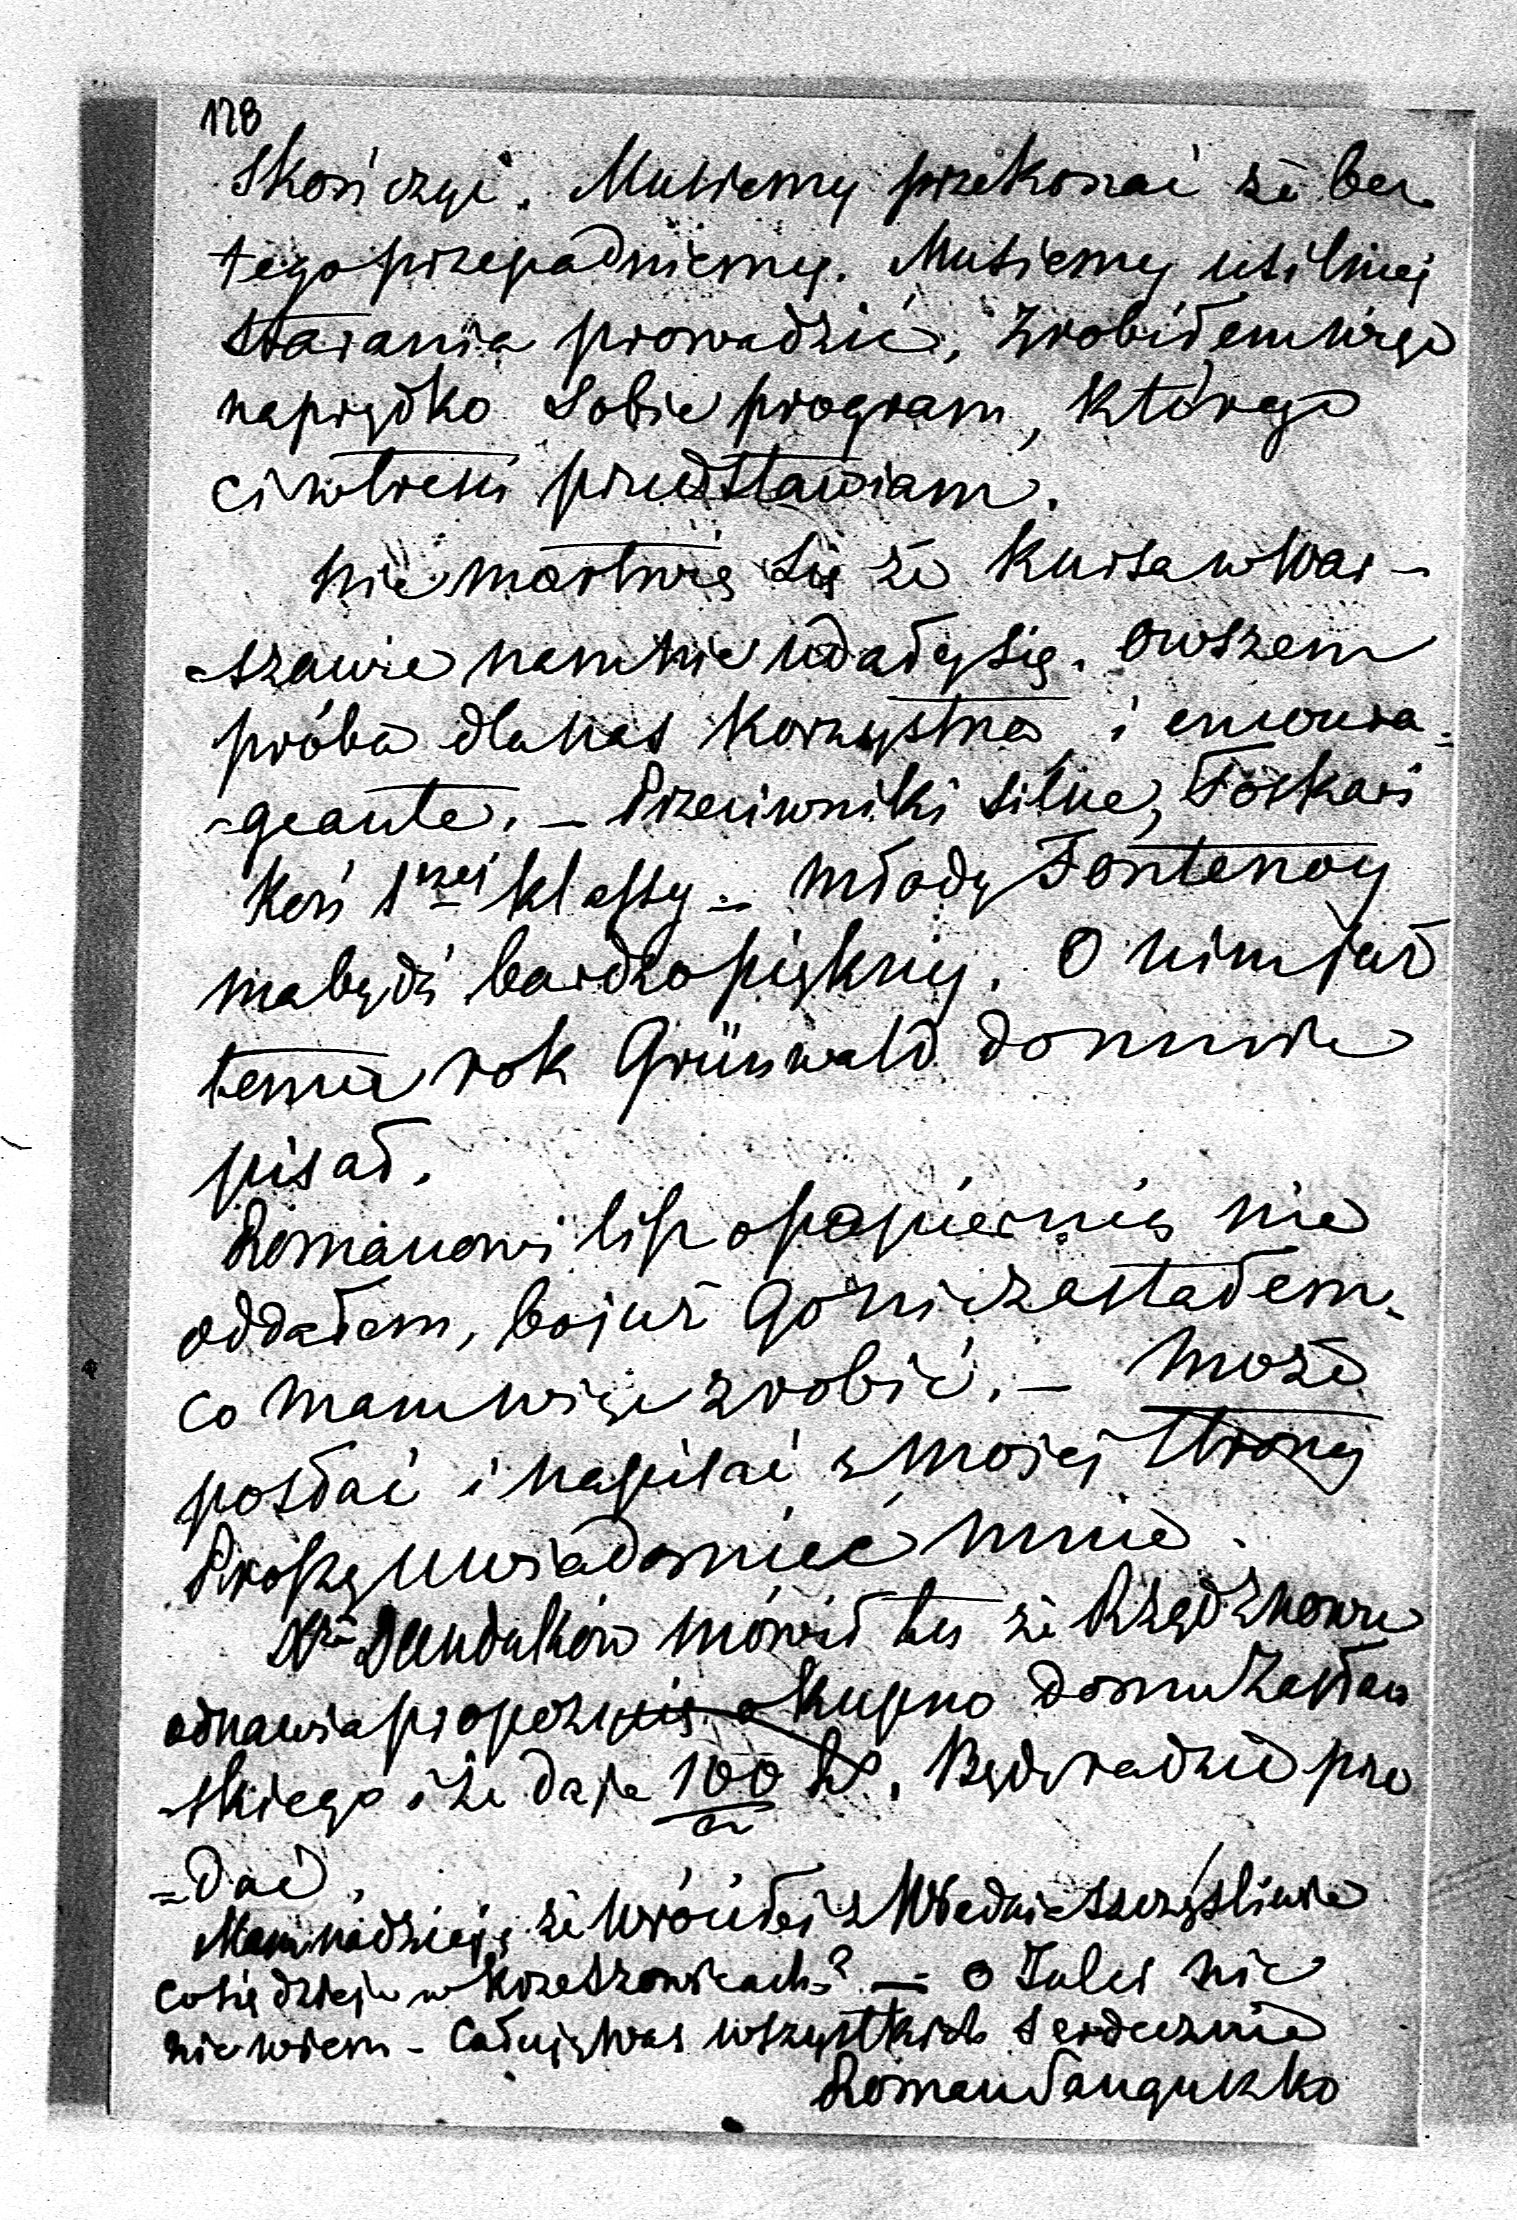 128
skończyć. Musiemy przekonać że bez
tego przepadniemy. Musiemy usilniej
starania prowadzić, zrobiłem więc
naprędko sobie program, którego
ci w treści przedstawiam.
Nie martwię się że kursa w War-
-szawie nam nie udały się. Owszem
próba dla nas korzystna i encoura-
-geante. — Przeciwniki silne,
Koń 1szej klassy — młody Fontenoy
ma być bardzo piękny. O nim już
temu rok Grünwald do mnie
pisał.
Romanowi list o papiernię nie
oddałem, bo już go nie zastałem.
co mam więc zrobić. — Może
posłać i napisać z mojej strony
Proszę uwiadomić mnie.
Dundukow mówił tu że Rząd znowu
odnawia propozycję o kupno domu Zasław
-skiego i że daje 100. Będę radził prze
=dać.
Mam nadzieję że wróciłeś z Wiednia szczęśliwie
co się dzieje w Krzeszowicach? — o Julci nic
nie wiem – Całuję Was wszystkich serdecznie
Roman Sanguszko